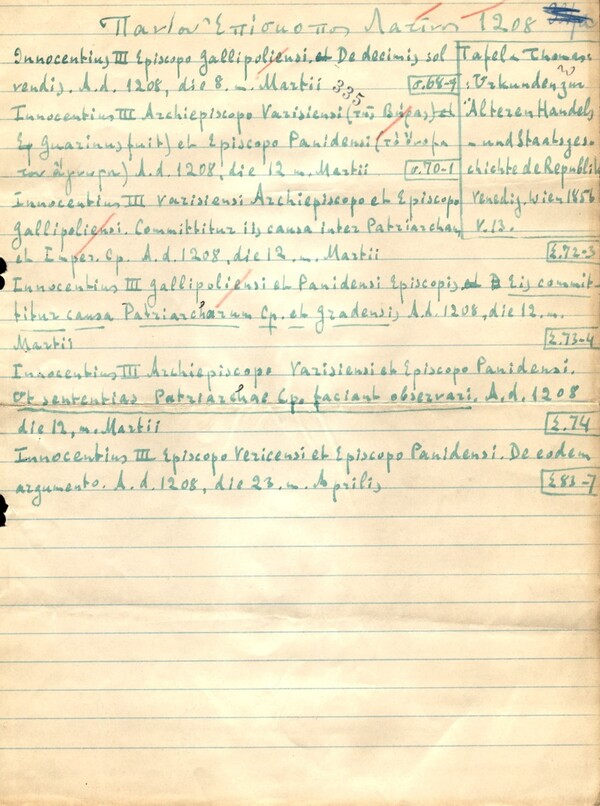 Πανίου Ἐπίσκοπος Λατῖνος 1208
Innocentius III Episcopo Gallipoliensi. et De decimis sol
vendis. A.d. 1208, die 8. m. Martii σ.68-9
335
Innocentius III Archiepiscopo Varisiensi (τῆς Βήρας) et
Ep Guarinus fuit) et Episcopo Panidensi (τὸ ὄνομα
του ἄγνωστον) A.d. 1208, die 12 m. Martii σ.70-1
Innocentius III Varisiensi Archiepiscopo et Episcopo
Gallipoliensi. Committitur iis causa inter Patriarcham
et Imper. Cp. A.d. 1208, die 12. m. Martii Σ.72-3
Tafel - Thomas:
Urkunden zur
Älteren Handels
- und Staatsges-
chichte de Republik
Venedig. Wien 1856
V. 13.
Innocentius III Gallipoliensi et Panidensi Episcopis, et Eis commit-
titur causa Patriarcharum Cp. et Gradensis A.d. 1208, die 12. m.
Martii Σ.73-4
Innocentius III Archiepiscopo Varisiensi et Episcopo Panidensi.
Ut sententias Patriarchae Cp. faciant observari. A.d. 1208
die 12, m. Martii Σ.74
Innocentius III Episcopo Vericensi et Episcopo Panidensi. De eodem
argumento. A.d. 1208, die 23. m. Aprilis Σ83-7